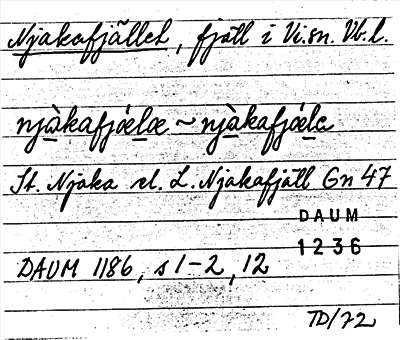 Njakafjället, fjäll i Vi.sn. Vb.l.
njàkafjǿelæ ~ njàkafjǿele
St. Njaka el. L. Njakafjäll Gn 47
DAUM
1236
DAUM 1186, s 1-2, 12
TD/72